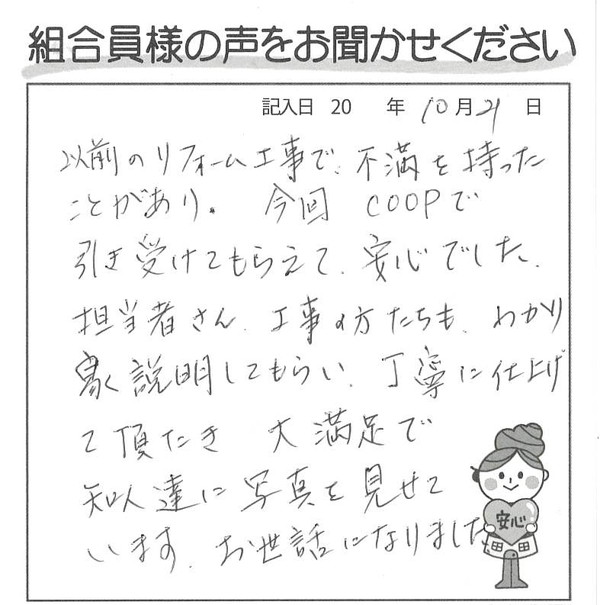 組合員様の声をお聞かせください
記入日 20 年 10月21日
以前のリフォーム工事で、不満を持った
ことがあり。 今回 COOPで
引き受けてもらえて、安心でした、
担当者さん、工事の方たちも、わかり
易く説明してもらい、丁寧に仕上げ
て頂たき 大満足で
知人達に写真を見せて
います。お世話になりました
安心